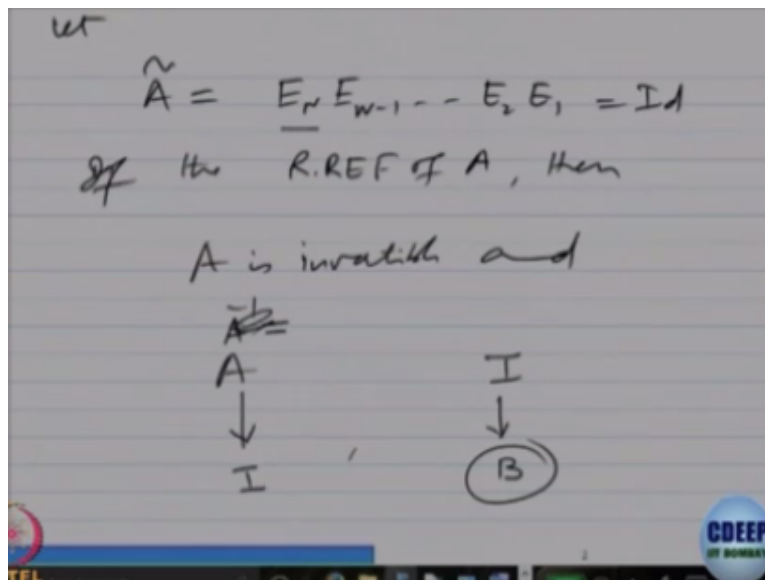 let
Ã = E_N E_{N-1} -- E_2 E_1 = Id
If the R.REF of A, then
A is invertible and
A^{-1} =
A I
↓ ↓
I , B
CDEEP
IIT BOMBAY
TEL